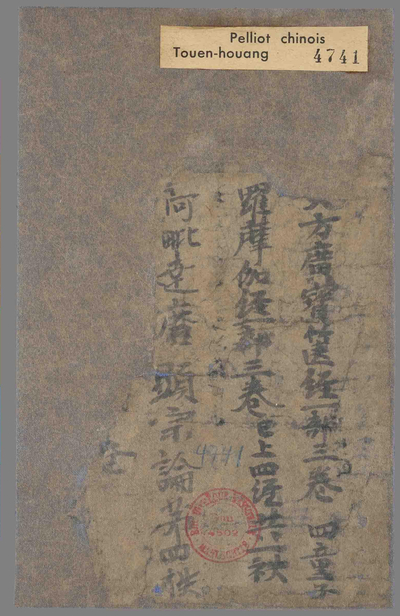 Pelliot chinois
Touen-houang 4741
大方廣寶篋經一部三卷 四童子
羅摩伽經一部三卷 已上四經共一袟
阿毗达磨顯宗論苐四袟
4741